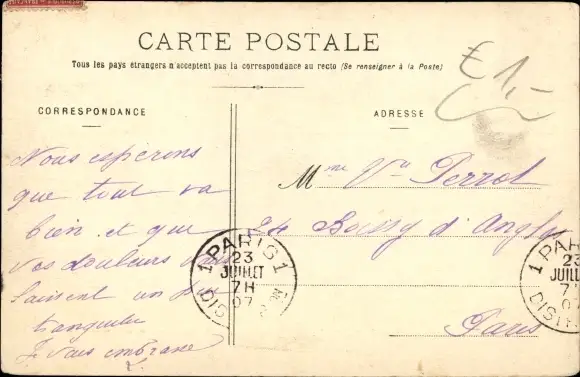 CARTE POSTALE
Tous les pays étrangers n'acceptent pas la correspondance au recto (Se renseigner à la Poste)
£1,-
CORRESPONDANCE
Nous espérons
que tout va
bien et que
vos douleurs vous
laissent un peu
tranquille
Je vous embrasse
ADRESSE
Mme Vve Perrot
24 Boissy d'Anglas
Paris
PARIS 1
23
JUILLET
7H
07
DISTRIB
1 PARIS
23
JUILLET
7H
07
DISTRIB